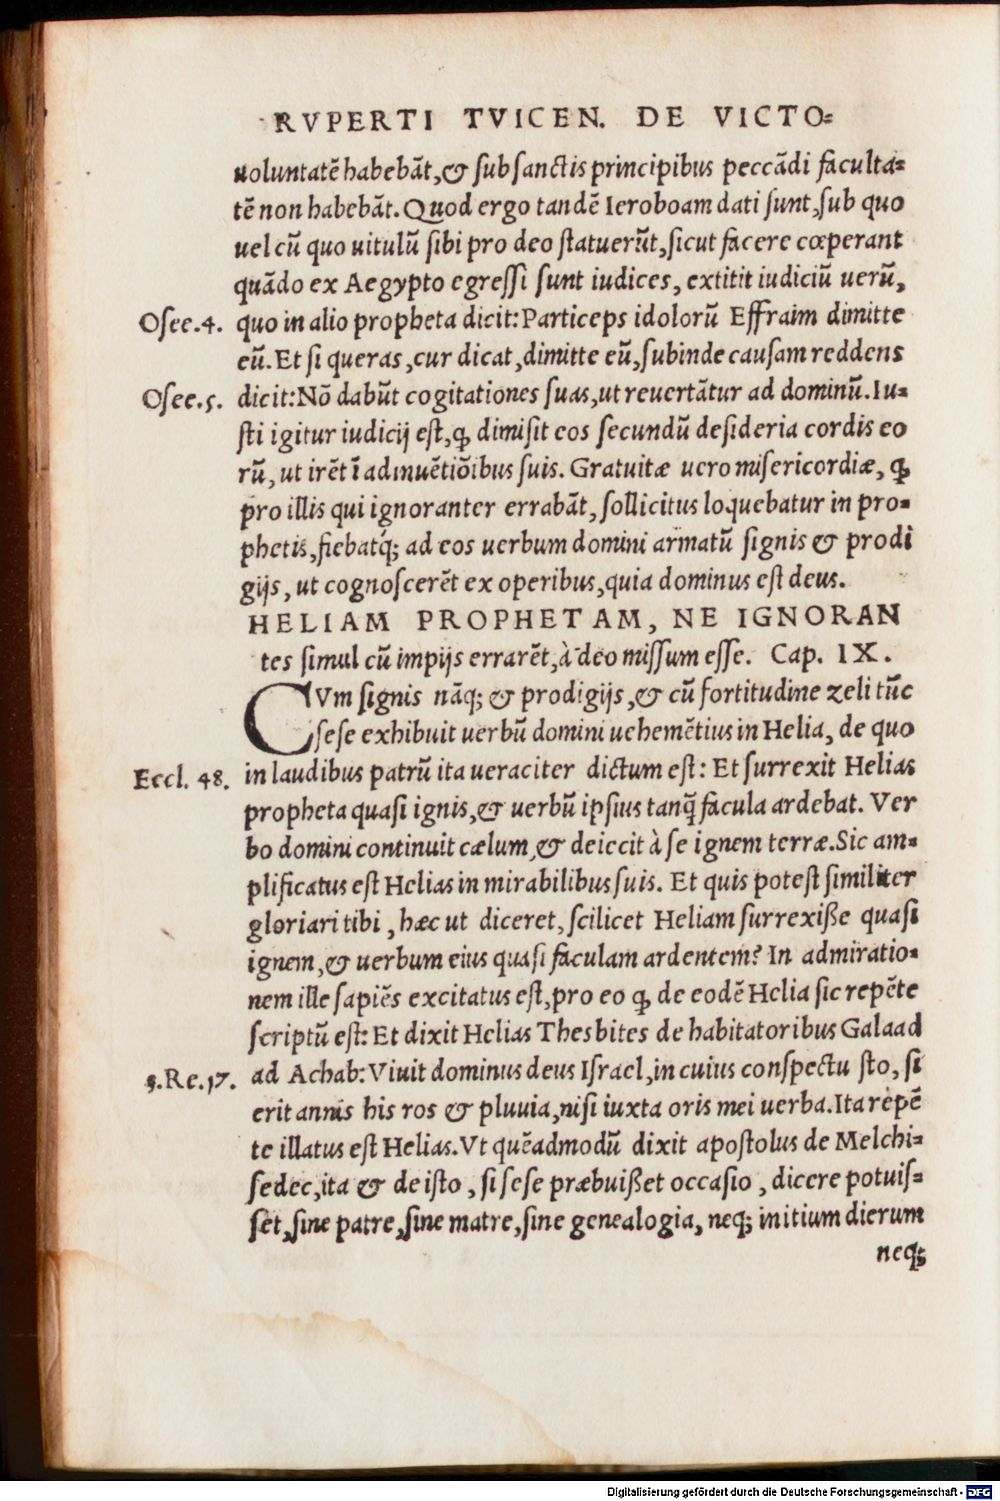 RVPERTI TVICEN. DE VICTO=
uoluntatē habebāt, & ſub ſanctis principibus peccādi faculta=
tē non habebāt. Quod ergo tandē Ieroboam dati ſunt, ſub quo
uel cū quo uitulū ſibi pro deo ſtatuerūt, ſicut facere cœperant
quādo ex Aegypto egreſſi ſunt iudices, extitit iudiciū uerū,
Oſee.4. quo in alio propheta dicit: Particeps idolorū Effraim dimitte
eū. Et ſi queras, cur dicat, dimitte eū, ſubinde cauſam reddens
Oſee.5. dicit: Nō dabūt cogitationes ſuas, ut reuertātur ad dominū. Iu=
ſti igitur iudicij eſt, ꝙ dimiſit eos ſecundū deſideria cordis eo
rū, ut irēt ī adinuētiōibus ſuis. Gratuitæ uero miſericordiæ, ꝙ
pro illis qui ignoranter errabāt, ſollicitus loquebatur in pro=
phetis, fiebatq́; ad eos uerbum domini armatū ſignis & prodi
gijs, ut cognoſcerēt ex operibus, quia dominus eſt deus.
HELIAM PROPHETAM, NE IGNORAN
tes ſimul cū impijs errarēt, à deo miſſum eſſe. Cap. IX.
CVm ſignis nāq; & prodigijs, & cū fortitudine zeli tūc
ſeſe exhibuit uerbū domini uehemētius in Helia, de quo
Eccl. 48. in laudibus patrū ita ueraciter dictum eſt: Et ſurrexit Helias
propheta quaſi ignis, & uerbū ipſius tanq̄ facula ardebat. Ver
bo domini continuit cælum, & deiecit à ſe ignem terræ. Sic am=
plificatus eſt Helias in mirabilibus ſuis. Et quis poteſt ſimiliter
gloriari tibi, hæc ut diceret, ſcilicet Heliam ſurrexiße quaſi
ignem, & uerbum eius quaſi faculam ardentem? In admiratio=
nem ille ſapiēs excitatus eſt, pro eo ꝙ de eodē Helia ſic repēte
ſcriptū eſt: Et dixit Helias Thesbites de habitatoribus Galaad
3.Re.17. ad Achab: Viuit dominus deus Iſrael, in cuius conſpectu ſto, ſi
erit annis his ros & pluuia, niſi iuxta oris mei uerba. Ita repē
te illatus eſt Helias. Vt quēadmodū dixit apoſtolus de Melchi=
ſedec, ita & de iſto, ſi ſeſe præbuißet occaſio, dicere potuiſ=
ſet, ſine patre, ſine matre, ſine genealogia, neq; initium dierum
neq;
Digitalisierung gefördert durch die Deutsche Forschungsgemeinschaft - DFG